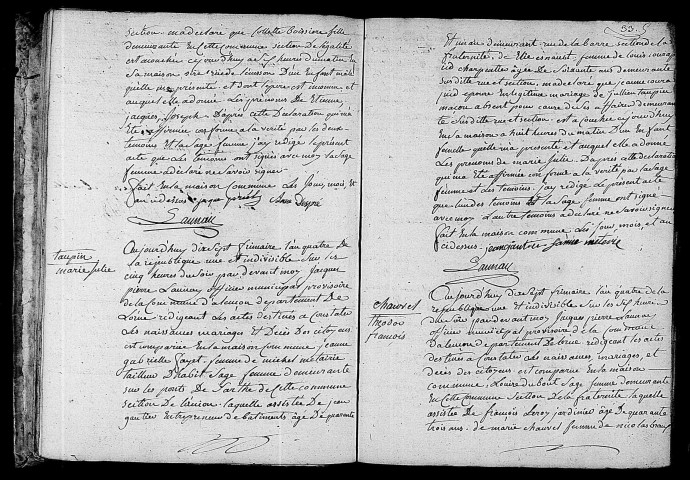 section, madeclare que Collette Boissiere fille
demeurante En Cette Commune section De légalité
est accouchée cejourdhuy a heures du matin En
sa maison rue De Sensson D'un Enfant male
quelle ma présenté et dont le pere est inconnu, et
auquel elle a donné Les prenoms De Etienne
jacques joseph D'après Cette Declaration qui m'a
Eté affirmée Conforme a la verité par les deux
temoins Et la sage femme jay redigé le present
acte que Les temoins ont signés avec moy la sage
femme a declaré ne savoir signer
fait En la maison Commune Les Jour, mois, Et
an cidessus
Launay
taupin
marie julie
Aujourdhuy dix sept frimaire l'an quatre De
la republique une et indivisible sur les
cinq heures du soir par devant moy Jacques
pierre Launay officier municipal provisoire
de la Commune d'alencon departement De
Lorne redigeant Les actes destinés a Constater
Les naissances mariages et Décès Des citoyens
est comparüe En la maison commune jeanne
gabrielle femme de michel métairie
tailleur D'habit sage femme demeurante
sur les ponts De Sarthe de Cette commune
section De laquelle assistée De jean
gautier Entrepreneur de batiments agé De quarante
33.
Et un an demeurant rue de la barre section de la
fraternité, de Elie femme de louis
charpentier agée De soixante ans demeurante
susditte rue et section, madeclare que jeanne
epouse En legitime mariage de Jullien taupin
macon absent pour cause de ses affaire demeurante
susditte rue et section, est accouchée cejourdhuy
En sa maison a huit heures du matin D'un Enfant
femelle quelle m'a presenté et auquel elle a donné
Les prenoms de marie julie. D'apres cette declaration
qui m'a Eté affirmée conforme a la verité par la sage
femme et Les temoins, jay redigé Le present acte
que lun des temoins Et la sage femme ont signé
avec moy L'autre temoins a declaré ne savoir signer
fait En la maison commune Les jour, mois et an
cidessus jean gautier femme métairie
Launay
chauvel
theodore
francois
Aujourdhuy dix sept frimaire l'an quatre de la
republique une Et indivisible sur les sept heures
du soir par devant moy Jacques pierre Launay
officier municipal provisoire de la Commune
D'alencon departement De lorne redigeant les actes
destinés a Constater Les naissances, mariages, et
décès des citoyens est comparüe En la maison
commune, Louise dubout sage femme demeurante
En cette Commune section De la fraternité laquelle
assistée De francois Leroy jardinier agé de quarante
trois ans, de marie chauvel femme de nicolas